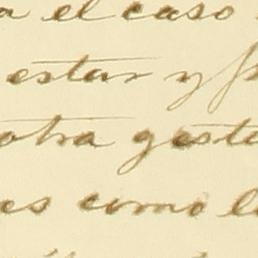 a el caso
estar y p
otra gesta
es como l